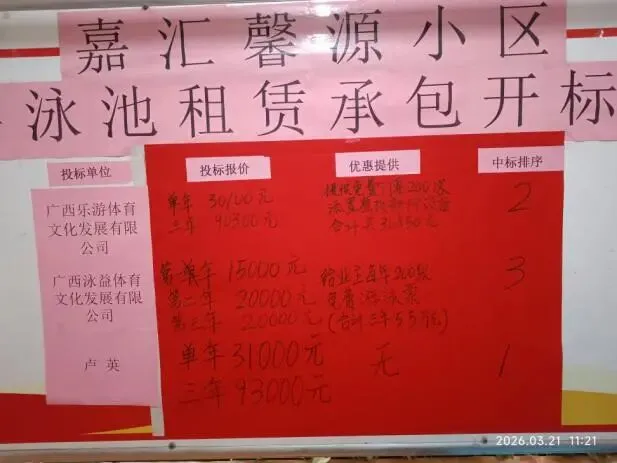 嘉汇馨源小区
泳池租赁承包开标
投标单位
投标报价
优惠提供
中标排序
广西乐游体育
文化发展有限
公司
单年 30100元
三年 90300元
2
广西泳益体育
文化发展有限
公司
第一年 15000元
第二年 20000元
第三年 20000元
给业主每年200张
免费游泳票
(合计三年55万元)
3
卢英
单年31000元
三年 93000元
无
1
2026.03.21 11:21